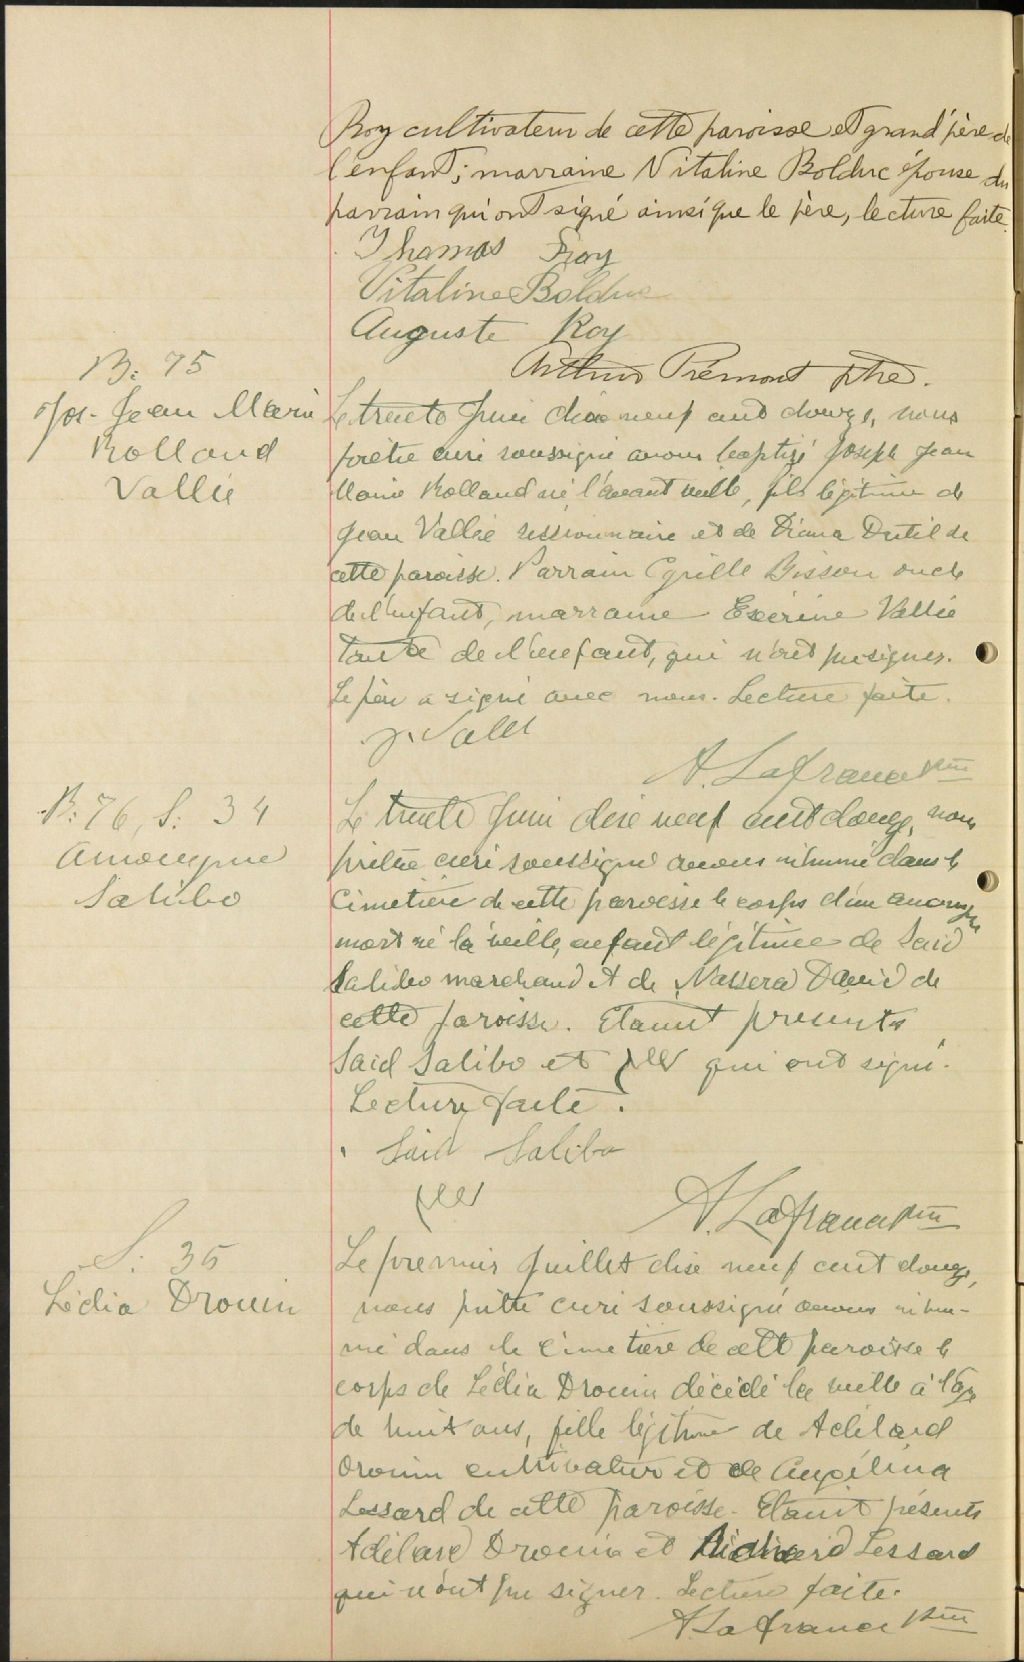 Roy cultivateur de cette paroisse et grand'père de
l'enfant; marraine Vitaline Bolduc épouse du
parrain qui ont signé ainsi que le père, lecture faite.
Thomas Roy
Vitaline Bolduc
Auguste Roy
Arthur Prémont ptre.
B: 75
Jos-Jean Marie
Rolland
Vallée
Le trente Juin dix neuf cent douze, nous
prêtre curé soussigné avons baptizé Joseph Jean
Marie Rolland né l'avant veille, fils légitime de
Jean Vallée sessionnaire et de Diana Dutil de
cette paroisse. Parrain Cyrille Bisson oncle
de l'enfant, marraine Exérine Vallée
tante de l'enfant, qui n'ont pu signer.
Le père a signé avec nous. Lecture faite.
J. Valle
A. Lafrance Ptre
B: 76, S: 34
Anonyme
Salibo
Le trente Juin dix neuf cent douze, nous
prêtre curé soussigné avons inhumé dans le
Cimetière de cette paroisse le corps d'un anonyme
mort né la veille, enfant légitime de Said
Salibo marchand et de Nassera David de
cette paroisse. Etaient présents
Said Salibo et qui ont signé.
Lecture faite.
Said Saliba
A. Lafrance Ptre
S: 35
Lédia Drouin
Le premier Juillet dix neuf cent douze,
nous prêtre curé soussigné avons inhu-
mé dans le cimetière de cette paroisse le
corps de Lédia Drouin décédé la veille à l'âge
de huit ans, fille légitime de Adélard
Drouin cultivateur et de Angélina
Lessard de cette paroisse. Etaient présents
Adélard Drouin et Lessard
qui n'ont pu signer. Lecture faite.
A. Lafrance Ptre